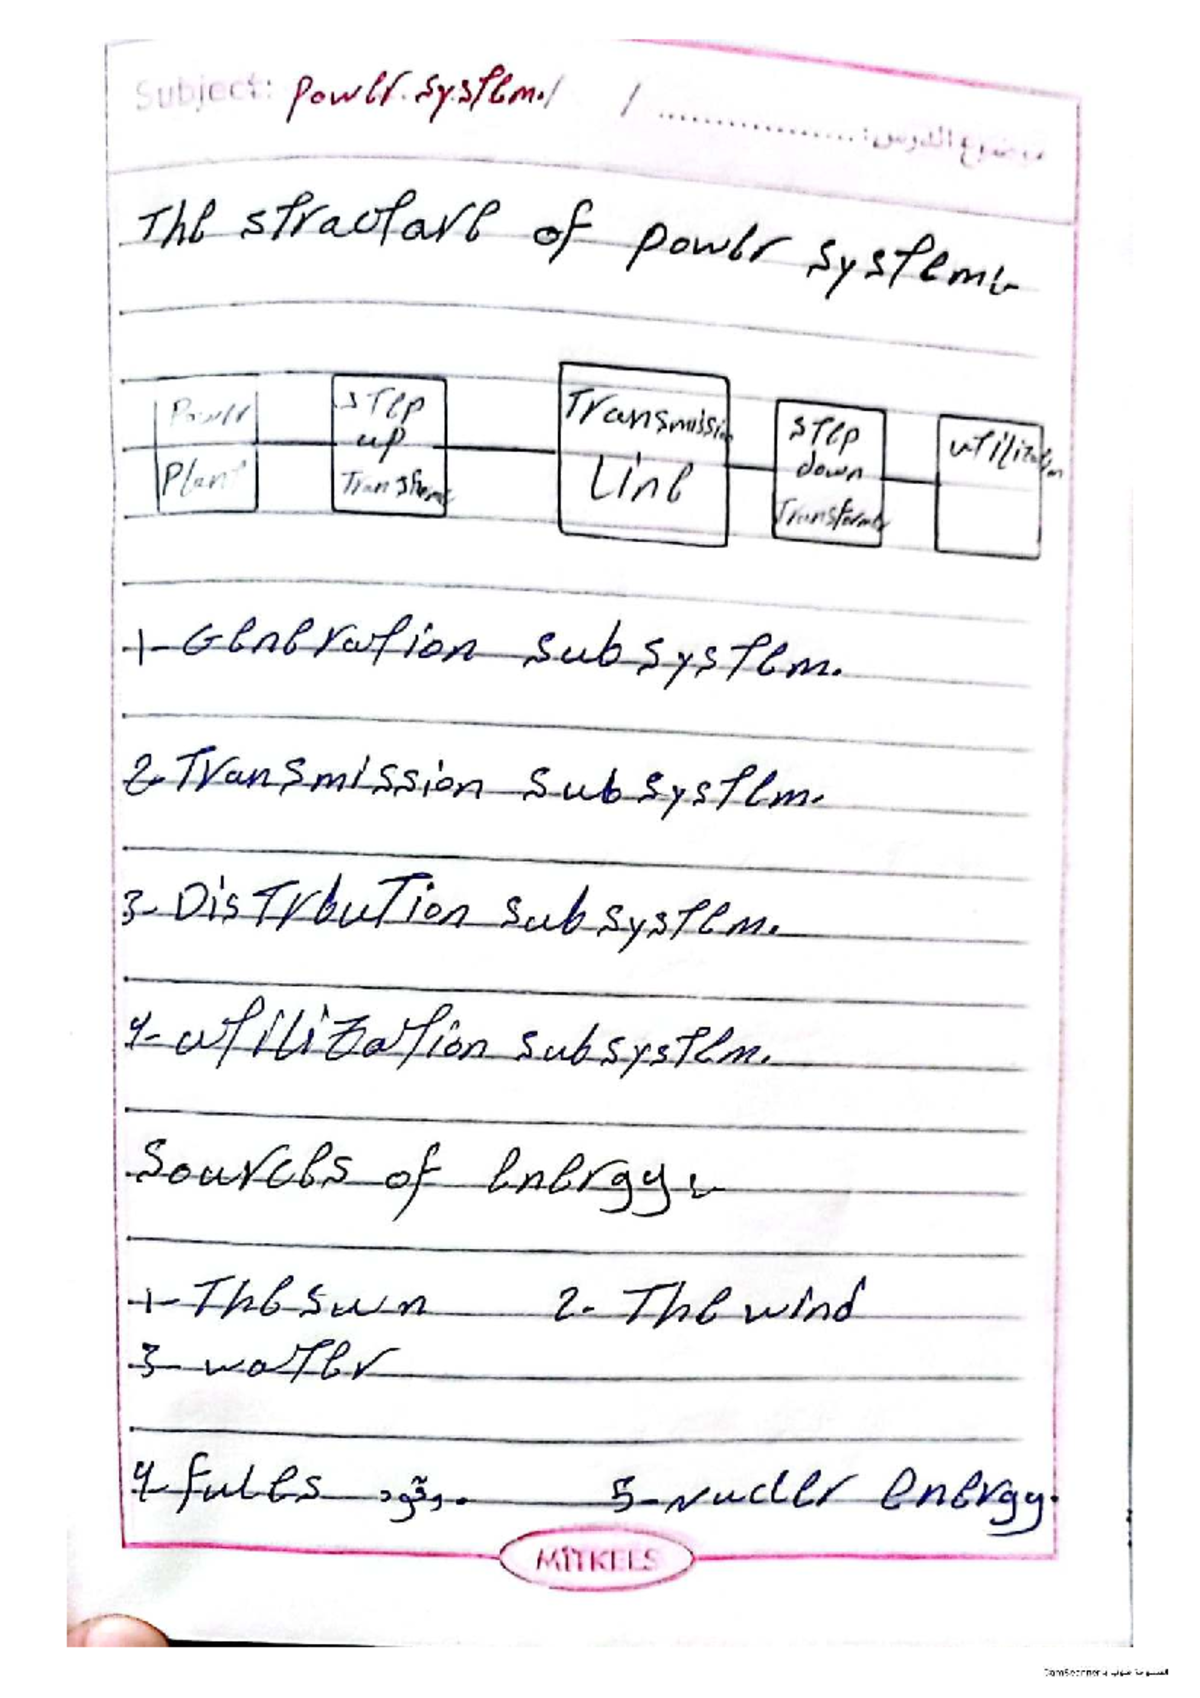 Subject: power system. / / ............... موضوع الدرس:
The stractare of power system:-
Power Plant
step up Transformer
Transmission Line
step down Transformer
utilization
1- Generation subsystem.
2- Transmission subsystem.
3- Distrbution subsystem.
4- utilization subsystem.
Sources of energy:-
1- The sun 2- The wind
3- watter
4- fules وقود. 5- nucler energy.
MITKEES
CamScanner الممسوحة ضوئيا بـ